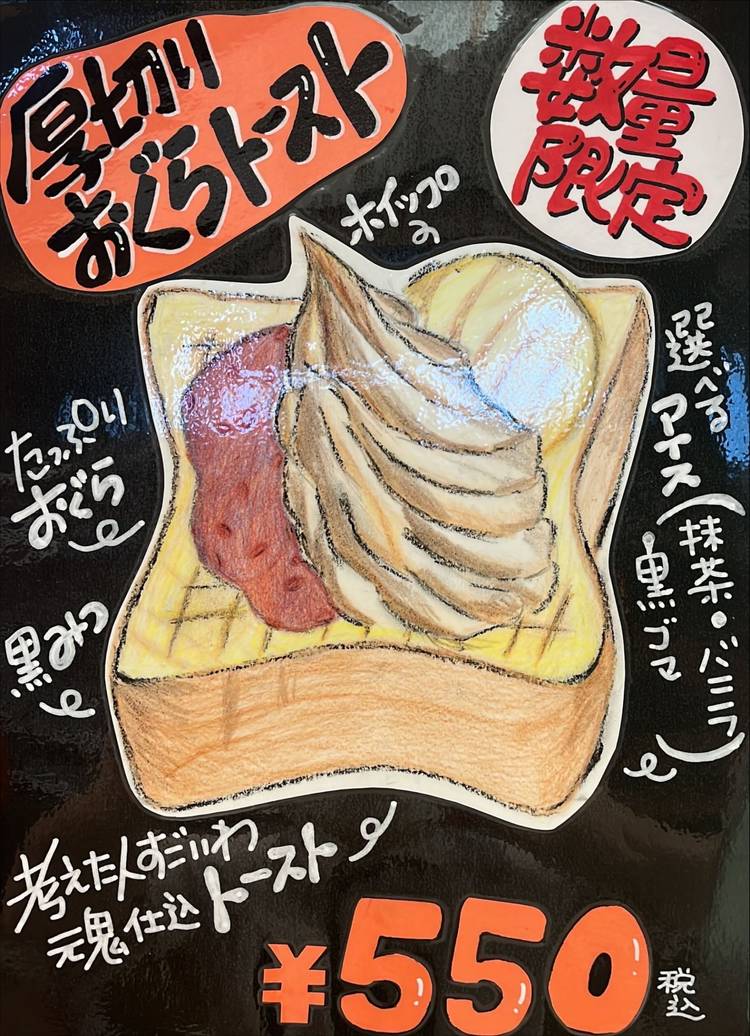 厚切り
おぐらトースト
数量
限定
ホイップ
たっぷり
おぐら
黒みつ
選べる
アイス(抹茶・バニラ
黒ゴマ)
考えた人すごいわ
魂仕込トースト
¥550
税込